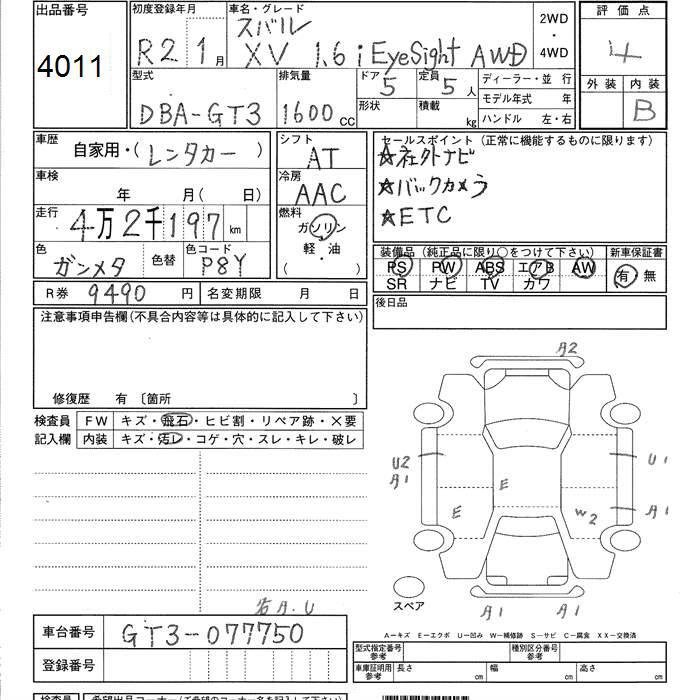 出品番号
4011
初度登録年月
R2 1月
車名・グレード
スバル
XV 1.6i EyeSight AWD
2WD
・
4WD
評価点
4
外装 内装
B
型式
DBA-GT3
排気量
1600cc
ドア 5
形状
定員 5人
積載 kg
ディーラー・並行
モデル年式 年
ハンドル 左・右
車歴
自家用・(レンタカー)
車検
年 月( 日)
走行
4万2千197km
色
ガンメタ
色替
色コード
P8Y
シフト
AT
冷房
AAC
燃料
ガソリン
軽・油
( ・ )
セールスポイント (正常に機能するものに限ります)
☆社外ナビ
☆バックカメラ
☆ETC
装備品 (純正品に限り○をつけて下さい)
PS PW ABS エアB AW
SR ナビ TV カワ
新車保証書
有 無
R券 9490円
名変期限 月 日
後日品
注意事項申告欄(不具合内容等は具体的に記入して下さい)
修復歴 有 〔箇所 〕
検査員
記入欄
FW キズ・飛石・ヒビ割・リペア跡・×要
内装 キズ・汚レ・コゲ・穴・スレ・キレ・破レ
A2
U2
A1
E
E
U1
A1
W2
スペア
A1 A1
若A.U
車台番号
GT3-077750
登録番号
A―キズ E―エクボ U―凹み W―補修跡 S―サビ C―腐食 XX―交換済
型式指定番号
参考
種別区分番号
参考
車庫証明用
参考
長さ cm 幅 cm 高さ cm
検査員
希望出品コーナー(ご希望のコーナー名を記入して下さい)